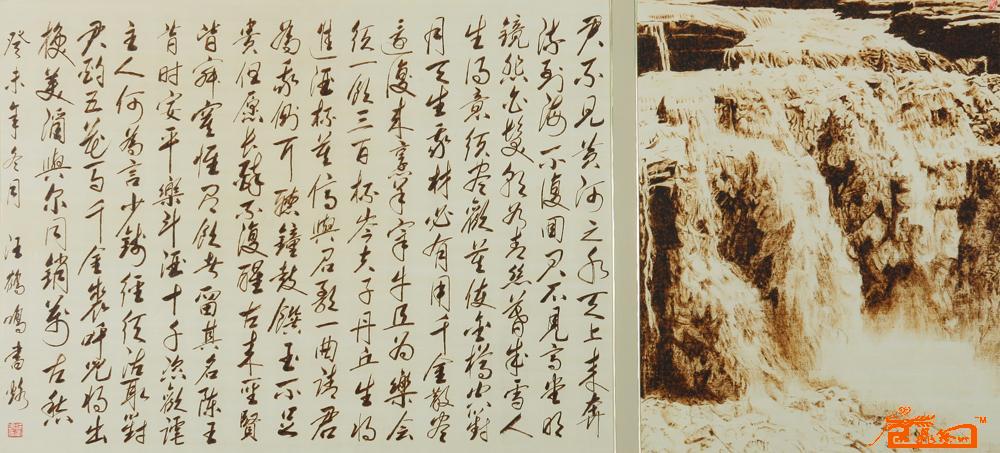 君不见黄河之水天上来奔
流到海不復回君不見高堂明
鏡悲白髮朝如青丝暮成雪人
生得意须尽歡莫使金樽空對
月天生我材必有用千金散尽
還復来烹羊宰牛且为樂会
须一饮三百杯岑夫子丹丘生将
進酒杯莫停與君歌一曲請君
為我側耳聽鐘鼓饌玉不足
貴但願长醉不復醒古来聖賢
皆寂寞惟有飲者留其名陈王
昔时宴平樂斗酒十千恣歡谑
主人何為言少錢徑须沽取對
君酌五花马千金裘呼兒将出
换美酒與尔同銷萬古愁
癸未年冬月 汪鶴鳴書烙
TM